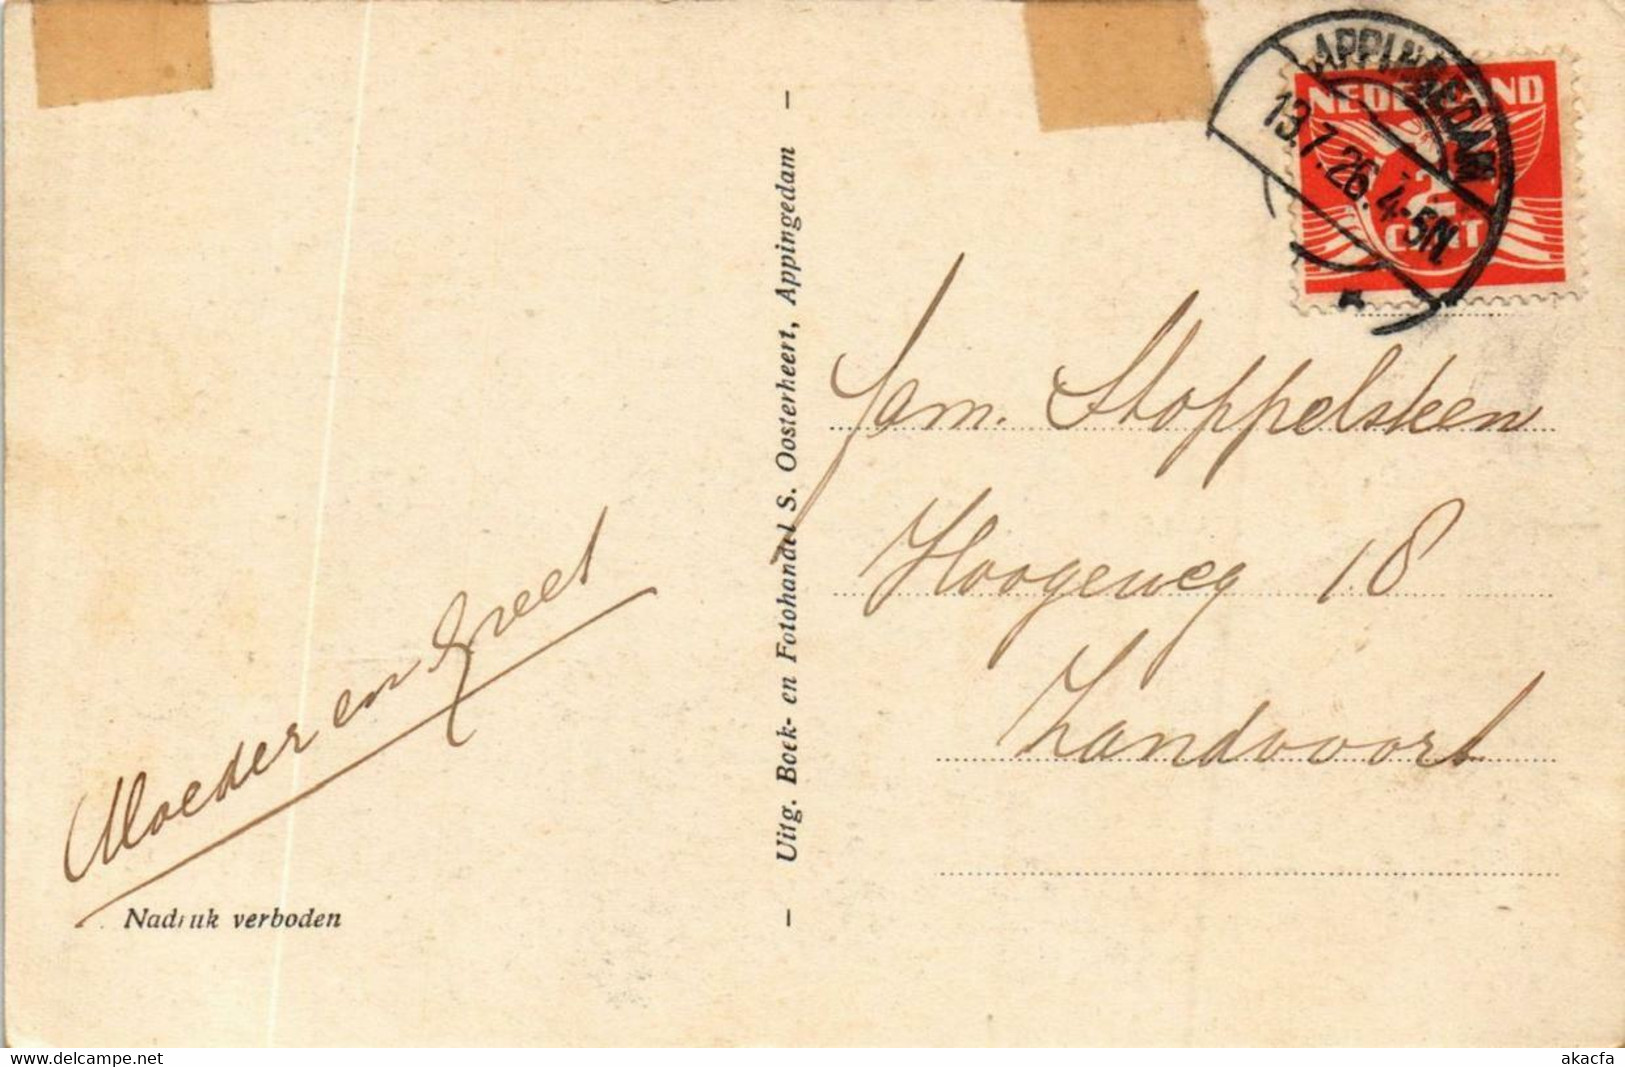 APPINGEDAM
13.7.26.4-5N
NEDERLAND
2
CENT
Uitg. Boek- en Fotohandel S. Oosterheert, Appingedam
Fam. Stoppelsteen
Hoogeweg 18
Zandvoort
Moeder en Greet
Nadruk verboden
www.delcampe.net
akacfa